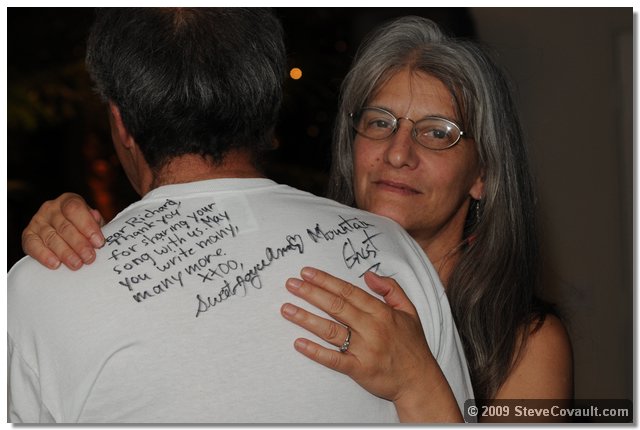 ear Richard,
Thank you
for sharing your
song with us. May
you write many,
many more.
XXOO,
Mountain
Ghost
© 2009 SteveCovault.com